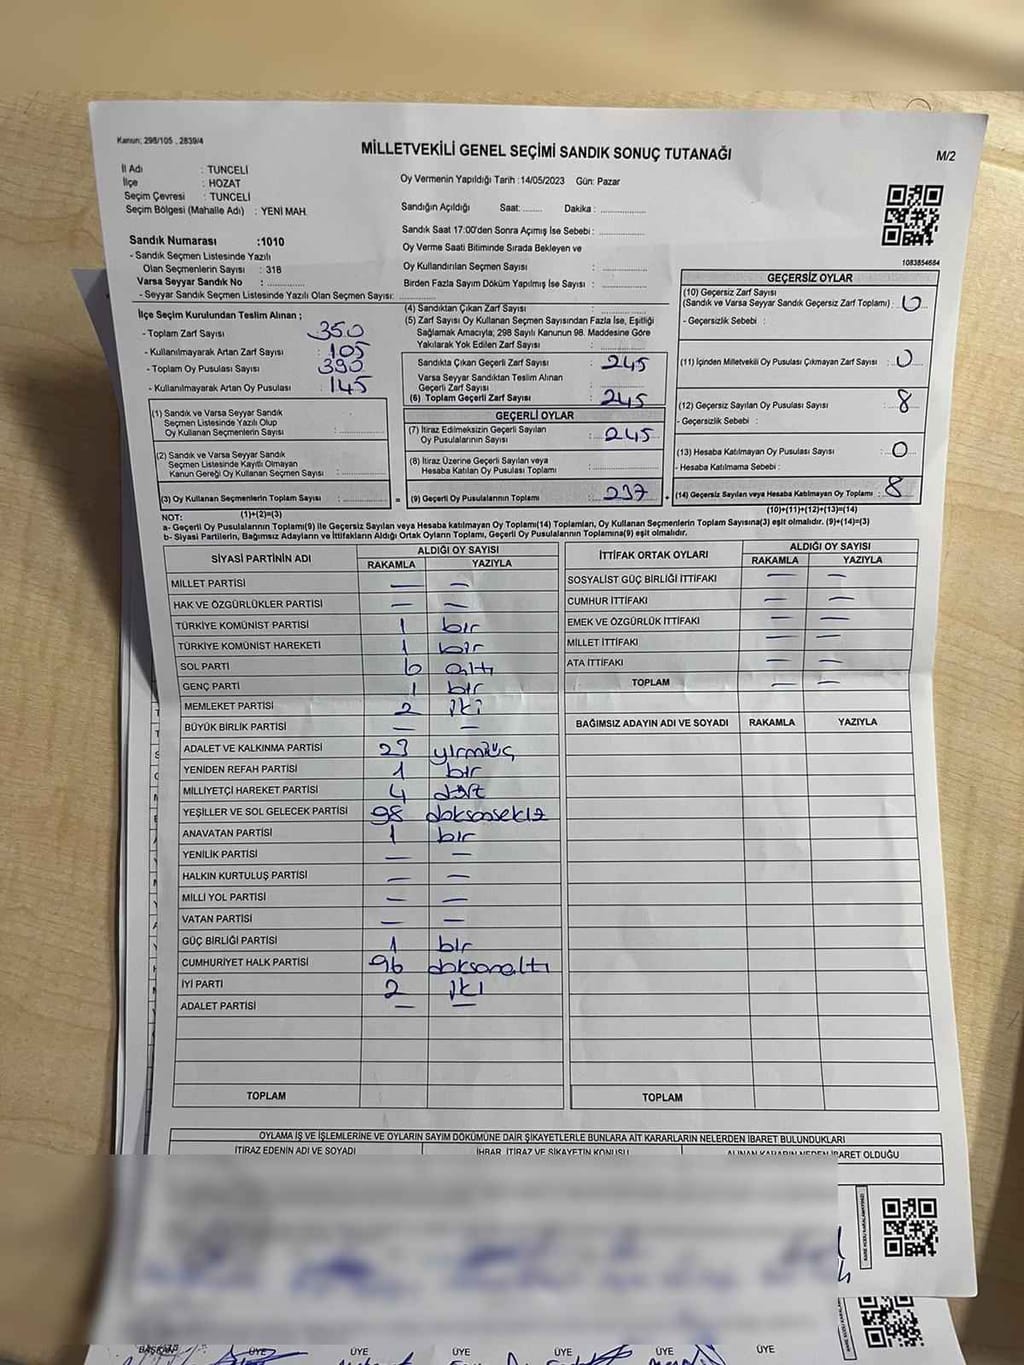 Kanun; 298/105 , 2839/4
MİLLETVEKİLİ GENEL SEÇİMİ SANDIK SONUÇ TUTANAĞI
M/2
İl Adı : TUNCELİ
İlçe : HOZAT
Seçim Çevresi : TUNCELİ
Seçim Bölgesi (Mahalle Adı) : YENİ MAH.
Oy Vermenin Yapıldığı Tarih :14/05/2023 Gün: Pazar
Sandığın Açıldığı Saat: ........ Dakika : ..................
Sandık Saat 17:00'den Sonra Açımış İse Sebebi : ..................
Oy Verme Saati Bitiminde Sırada Bekleyen ve
Oy Kullandırılan Seçmen Sayısı : ..................
Birden Fazla Sayım Döküm Yapılmış İse Sayısı : ..................
1083854684
Sandık Numarası :1010
- Sandık Seçmen Listesinde Yazılı
Olan Seçmenlerin Sayısı : 318
Varsa Seyyar Sandık No : ..................
- Seyyar Sandık Seçmen Listesinde Yazılı Olan Seçmen Sayısı: ..................
İlçe Seçim Kurulundan Teslim Alınan ;
- Toplam Zarf Sayısı : 350
- Kullanılmayarak Artan Zarf Sayısı : 105
- Toplam Oy Pusulası Sayısı : 390
- Kullanılmayarak Artan Oy Pusulası : 145
(1) Sandık ve Varsa Seyyar Sandık
Seçmen Listesinde Yazılı Olup
Oy Kullanan Seçmenlerin Sayısı : ..................
(2) Sandık ve Varsa Seyyar Sandık
Seçmen Listesinde Kayıtlı Olmayan
Kanun Gereği Oy Kullanan Seçmen Sayısı : ..................
(3) Oy Kullanan Seçmenlerin Toplam Sayısı : .................. =
(1)+(2)=(3)
(4) Sandıktan Çıkan Zarf Sayısı : ..................
(5) Zarf Sayısı Oy Kullanan Seçmen Sayısından Fazla İse, Eşitliği
Sağlamak Amacıyla; 298 Sayılı Kanunun 98. Maddesine Göre
Yakılarak Yok Edilen Zarf Sayısı : ..................
Sandıkta Çıkan Geçerli Zarf Sayısı : 245
Varsa Seyyar Sandıktan Teslim Alınan
Geçerli Zarf Sayısı : ..................
(6) Toplam Geçerli Zarf Sayısı : 245
GEÇERLİ OYLAR
(7) İtiraz Edilmeksizin Geçerli Sayılan
Oy Pusulalarının Sayısı : 245
(8) İtiraz Üzerine Geçerli Sayılan veya
Hesaba Katılan Oy Pusulası Toplamı : ..................
(9) Geçerli Oy Pusulalarının Toplamı : 237 +
GEÇERSİZ OYLAR
(10) Geçersiz Zarf Sayısı
(Sandık ve Varsa Seyyar Sandık Geçersiz Zarf Toplamı) : 0
- Geçersizlik Sebebi :
(11) İçinden Milletvekili Oy Pusulası Çıkmayan Zarf Sayısı : 0
(12) Geçersiz Sayılan Oy Pusulası Sayısı : 8
- Geçersizlik Sebebi :
(13) Hesaba Katılmayan Oy Pusulası Sayısı : 0
- Hesaba Katılmama Sebebi :
(14) Geçersiz Sayılan veya Hesaba Katılmayan Oy Toplamı : 8
(10)+(11)+(12)+(13)=(14)
NOT:
a- Geçerli Oy Pusulalarının Toplamı(9) ile Geçersiz Sayılan veya Hesaba katılmayan Oy Toplamı(14) Toplamları, Oy Kullanan Seçmenlerin Toplam Sayısına(3) eşit olmalıdır. (9)+(14)=(3)
b- Siyasi Partilerin, Bağımsız Adayların ve İttifakların Aldığı Ortak Oyların Toplamı, Geçerli Oy Pusulalarının Toplamına(9) eşit olmalıdır.
SİYASİ PARTİNİN ADI ALDIĞI OY SAYISI
RAKAMLA YAZIYLA
MİLLET PARTİSİ — —
HAK VE ÖZGÜRLÜKLER PARTİSİ — —
TÜRKİYE KOMÜNİST PARTİSİ 1 bir
TÜRKİYE KOMÜNİST HAREKETİ 1 bir
SOL PARTİ 6 altı
GENÇ PARTİ 1 bir
MEMLEKET PARTİSİ 2 iki
BÜYÜK BİRLİK PARTİSİ — —
ADALET VE KALKINMA PARTİSİ 23 yirmiüç
YENİDEN REFAH PARTİSİ 1 bir
MİLLİYETÇİ HAREKET PARTİSİ 4 dört
YEŞİLLER VE SOL GELECEK PARTİSİ 98 doksansekiz
ANAVATAN PARTİSİ 1 bir
YENİLİK PARTİSİ — —
HALKIN KURTULUŞ PARTİSİ — —
MİLLİ YOL PARTİSİ — —
VATAN PARTİSİ — —
GÜÇ BİRLİĞİ PARTİSİ 1 bir
CUMHURİYET HALK PARTİSİ 96 doksanaltı
İYİ PARTİ 2 iki
ADALET PARTİSİ — —
TOPLAM
İTTİFAK ORTAK OYLARI ALDIĞI OY SAYISI
RAKAMLA YAZIYLA
SOSYALİST GÜÇ BİRLİĞİ İTTİFAKI — —
CUMHUR İTTİFAKI — —
EMEK VE ÖZGÜRLÜK İTTİFAKI — —
MİLLET İTTİFAKI — —
ATA İTTİFAKI — —
TOPLAM — —
BAĞIMSIZ ADAYIN ADI VE SOYADI RAKAMLA YAZIYLA
TOPLAM
OYLAMA İŞ VE İŞLEMLERİNE VE OYLARIN SAYIM DÖKÜMÜNE DAİR ŞİKAYETLERLE BUNLARA AİT KARARLARIN NELERDEN İBARET BULUNDUKLARI
İTİRAZ EDENİN ADI VE SOYADI İHBAR, İTİRAZ VE ŞİKAYETİN KONUSU ALINAN KARARIN NEDEN İBARET OLDUĞU
BAŞKAN ÜYE ÜYE ÜYE ÜYE ÜYE ÜYE